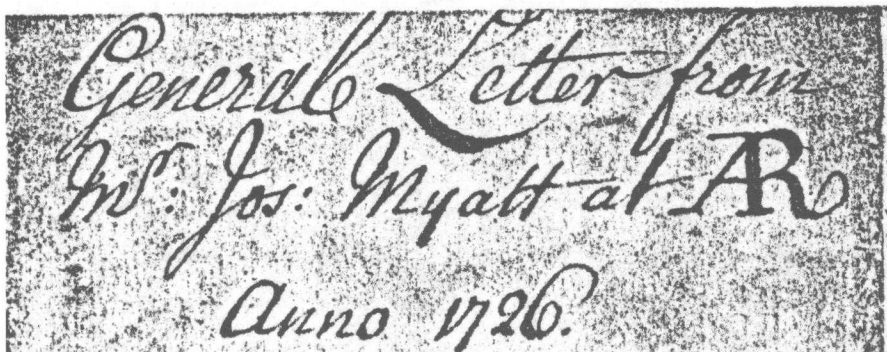 General Letter from
Mr: Jos: Myatt at AR
Anno 1726.